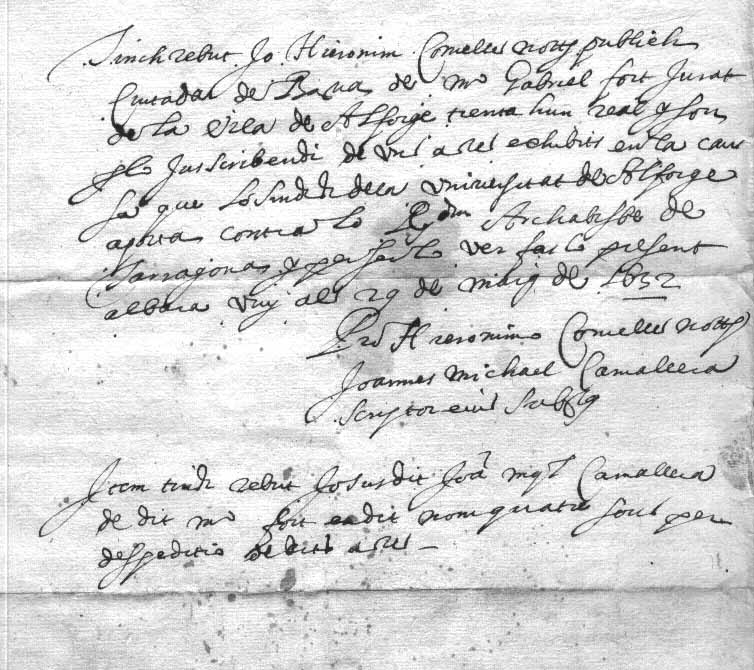 Tinch rebut Jo Hieronim Comelles nott publich
Ciutada de Barna de mr Gabriel fort Jurat
de la vila de Alforge trenta hun real y son
plo Jus scribendi de uns actes exhibits en la cau
sa que lo sindich de la universitat de Alforge
aporta contra lo Rm Archabisbe de
Tarragona y per ser lo ver fas lo present
albara vuy als 29 de maig de 1632
Pro Hieronimo Comelles notto
Joannes Michael Camallera
scriptor eius subsig
Item tinch rebut Jo susdit Joa mql Camallera
de dit mr fort en dit nom quatre sous per
despeditio de dits actes